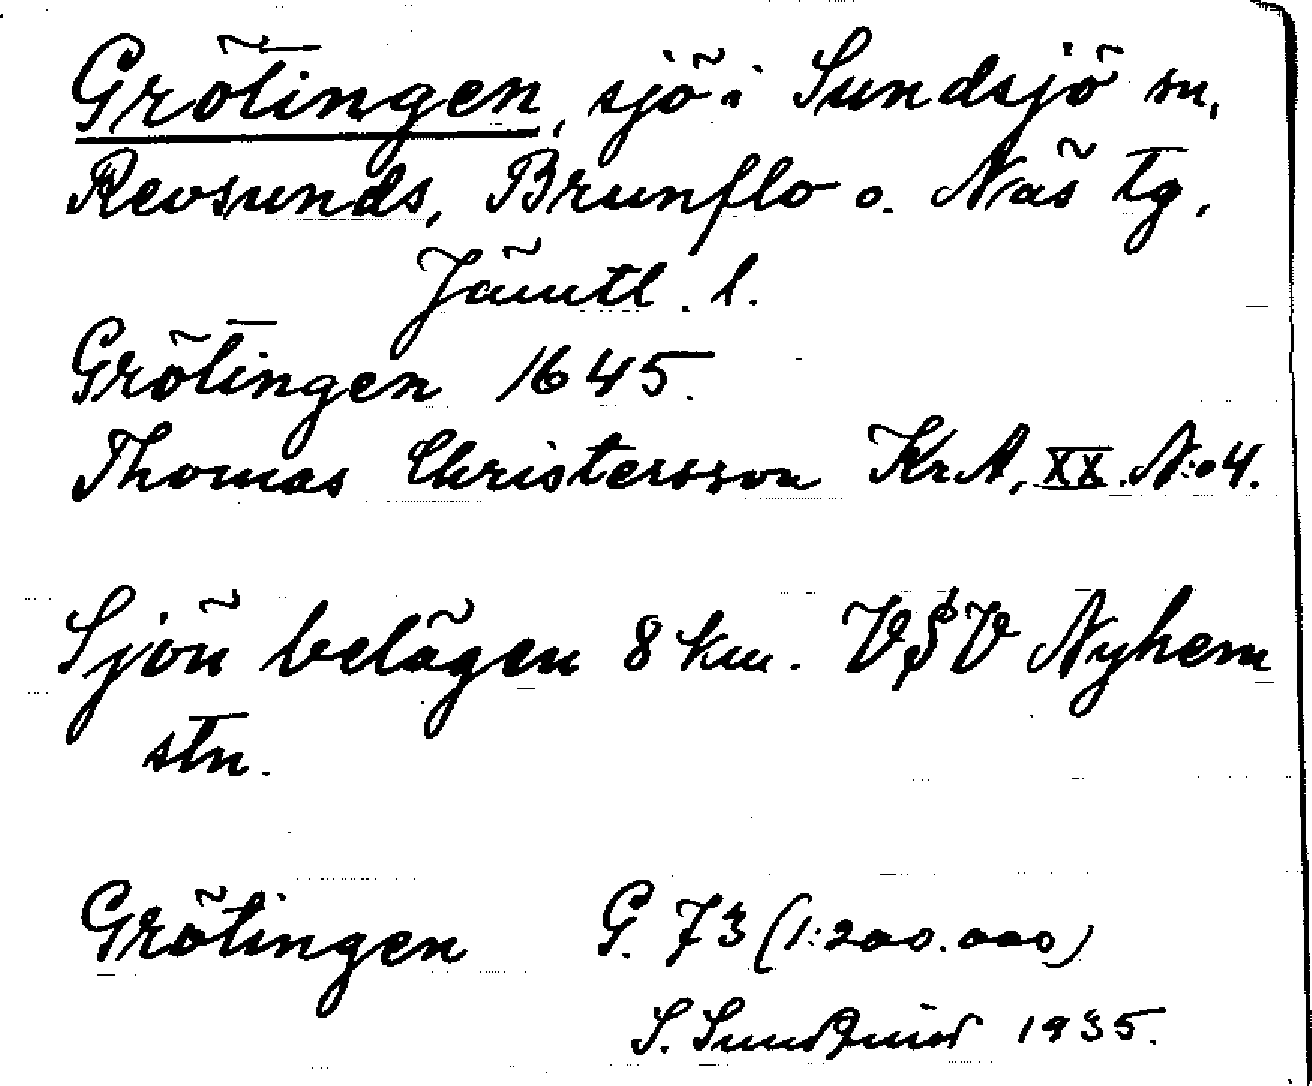 Grötingen, sjö i Sundsjö sn,
Revsunds, Brunflo o. Näs tg,
Jämtl. l.
Grötingen 1645.
Thomas Christersson KrA, XX. N:o 4.
Sjön belägen 8 km. VSV Nyhem
stn.
Grötingen G. 73 (1:200.000)
S. 1935.